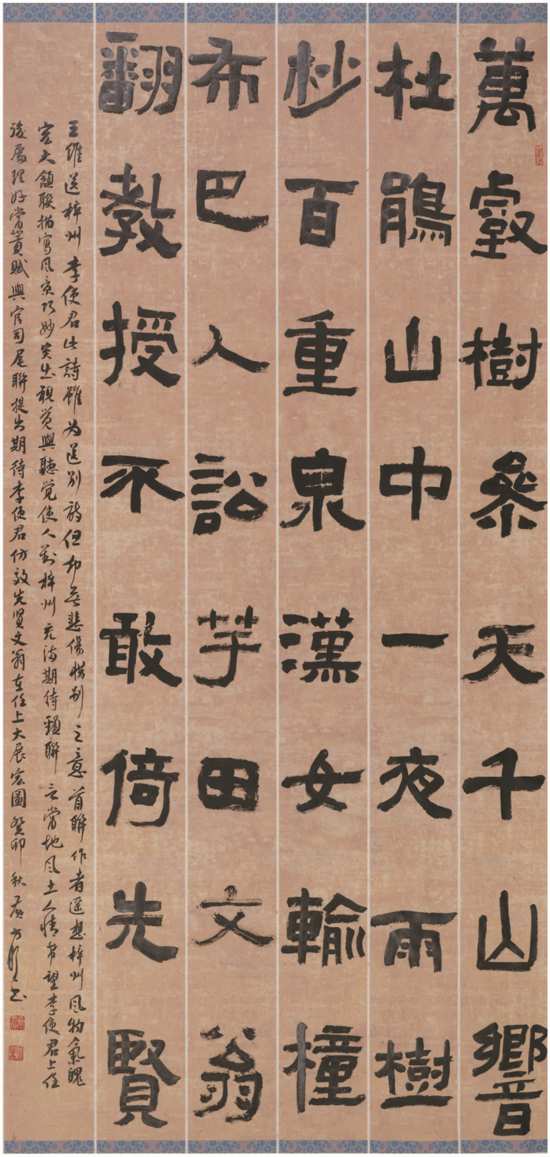 萬壑樹參天千山響
杜鵑山中一夜雨樹
杪百重泉漢女輸橦
布巴人訟芋田文翁
翻教授不敢倚先賢
王維送梓州李使君此詩雖為送别詩但却無悲傷惜别之意首聯作者遥想梓州風物氣魄
宏大頷聯描寫風景巧妙突出視覺與聽覺使人對梓州充滿期待頸聯言當地風土人情希望李使君上任
後處理好當賨賦與官司尾聯提出期待李使君仿效先賢文翁在任上大展宏圖癸卯秋